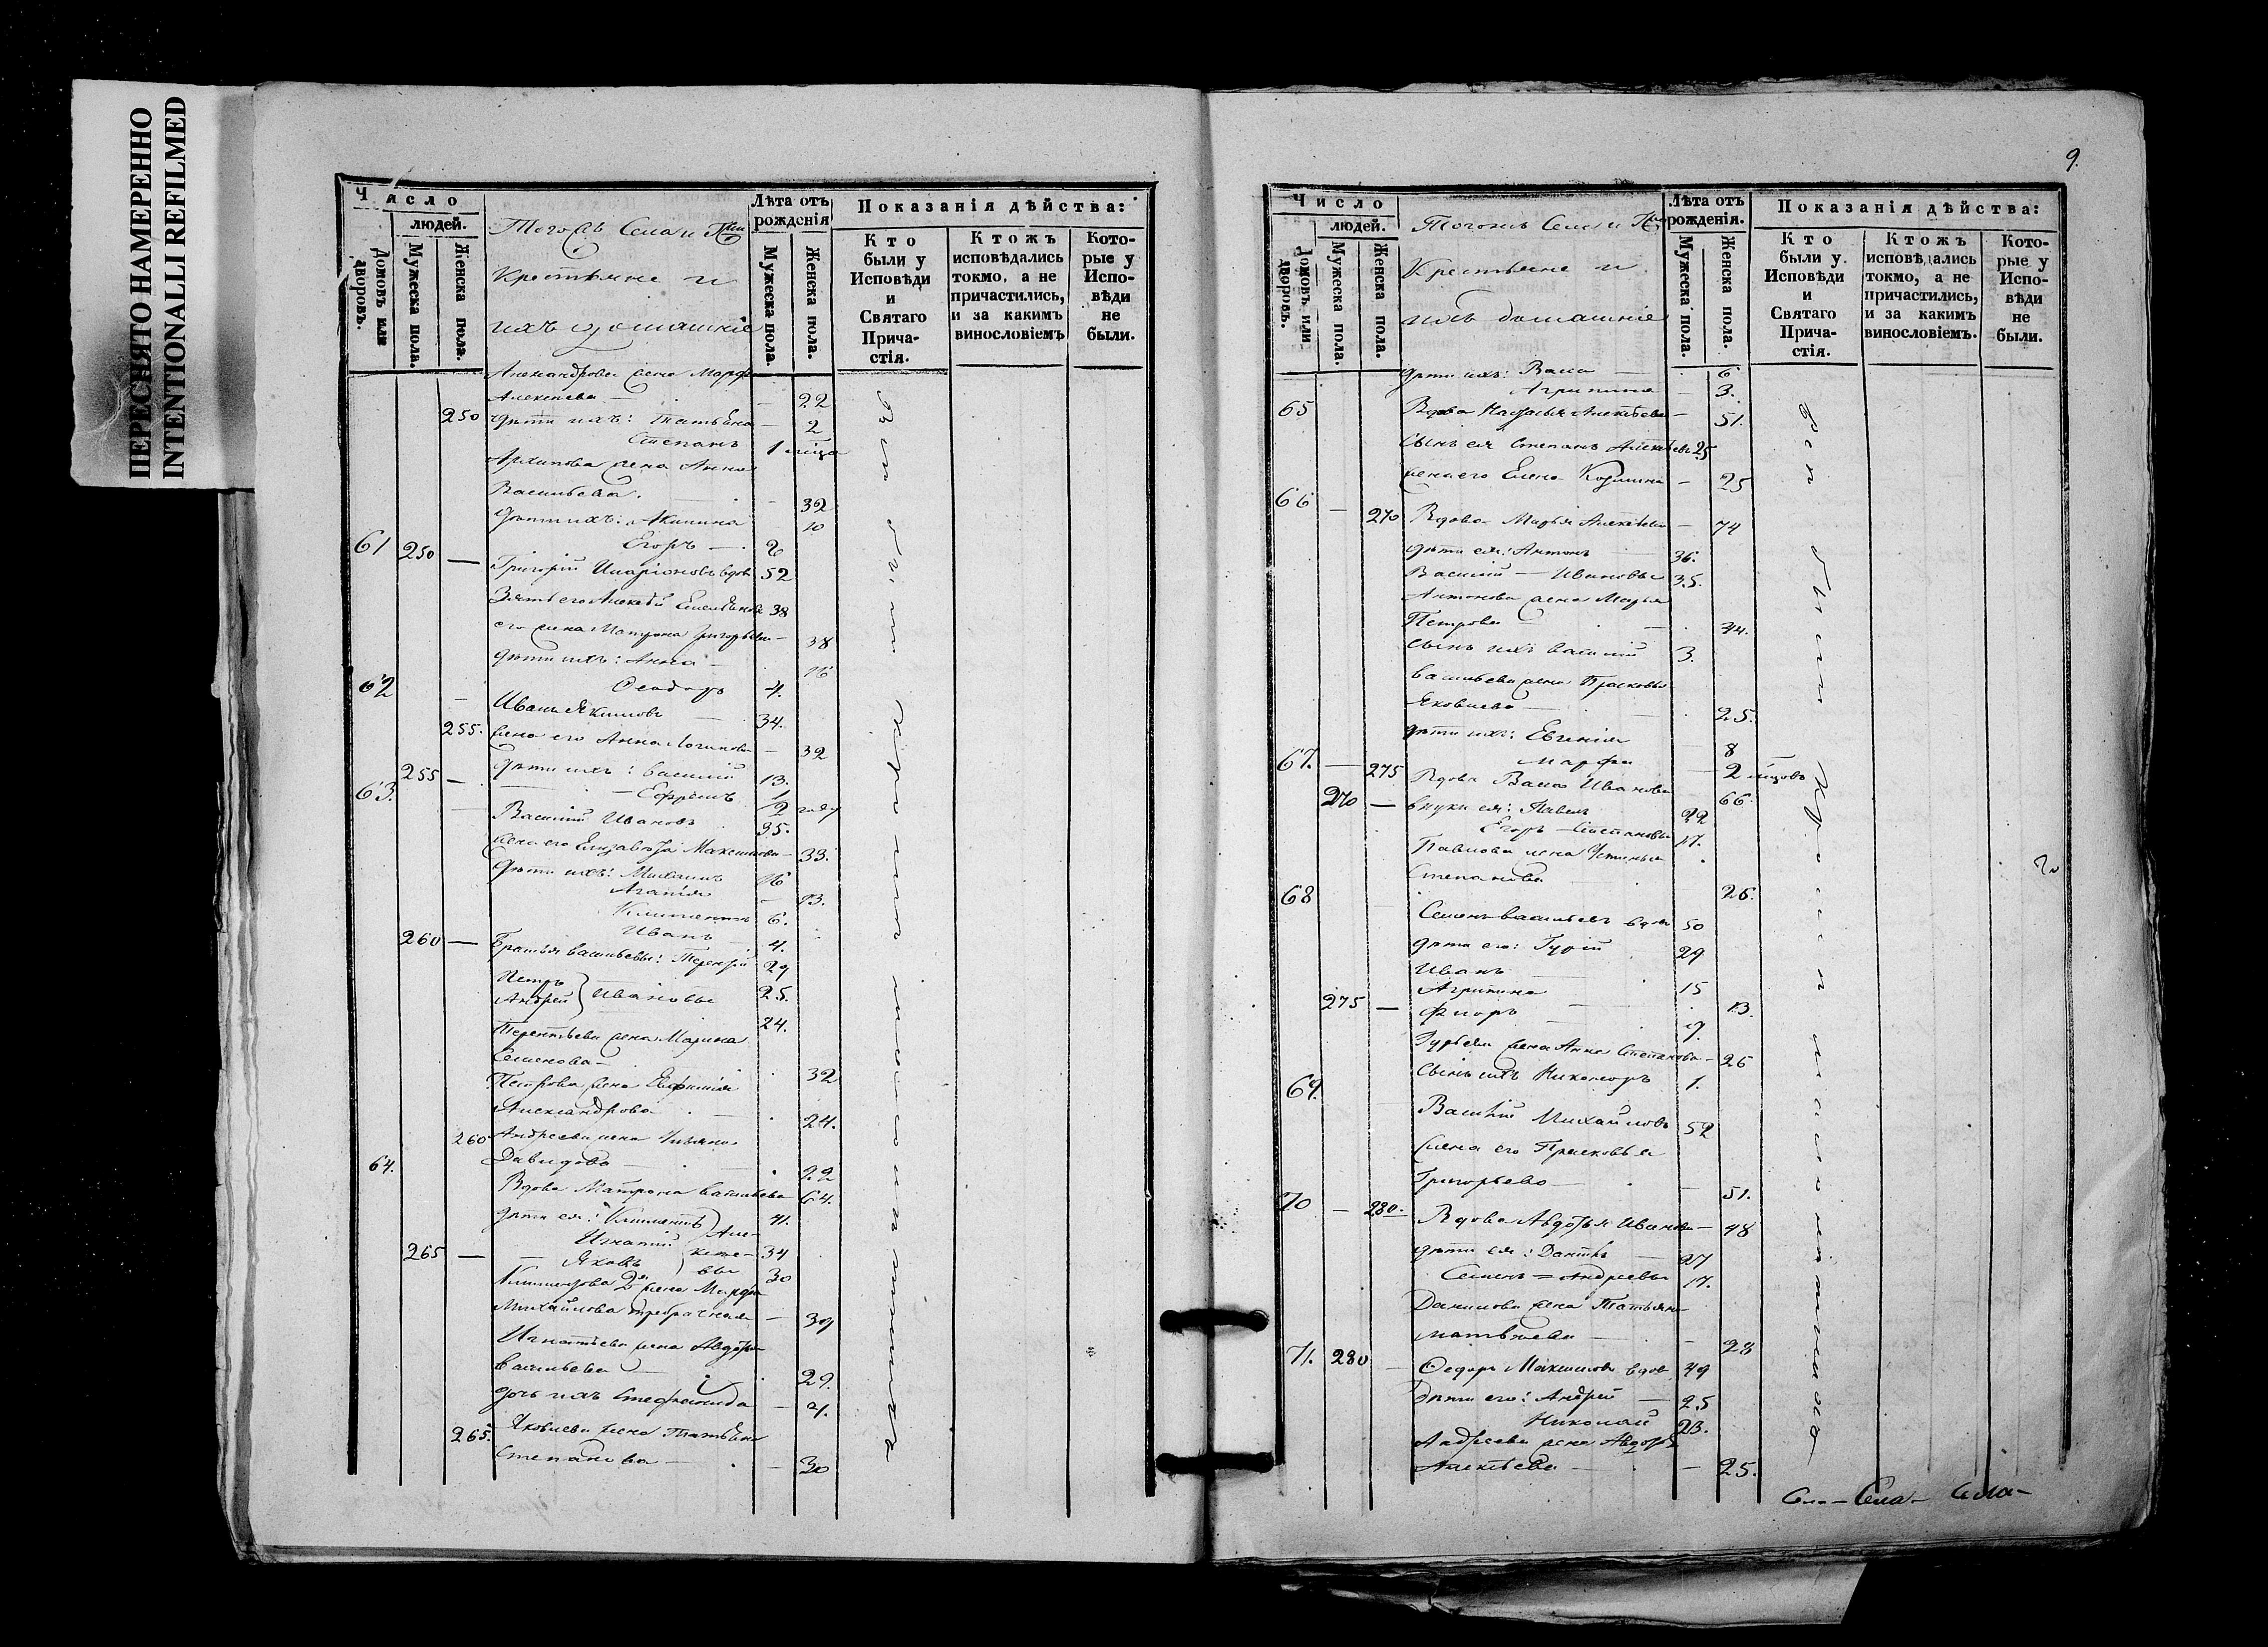 ПЕРЕСНЯТО НАМЕРЕННО
INTENTIONALLI REFILMED
Число
людей.
Домовъ или дворовъ.
Мужеска пола.
Женска пола.
Тогожъ Села и
Крестьяне и
ихъ домашніе
Лѣта отъ рожденія
Мужеска пола.
Женска пола.
Показанія дѣйства:
Кто были у Исповѣди и Святаго Прича-стія.
Ктожъ исповѣдались токмо, а не причастились, и за какимъ винословіемъ
Кото-рые у Испо-вѣди не были.
Александрова жена Марфа
Алексѣева 22
250 дѣти ихъ: Татьяна 2
Степанъ 1
Архипова жена Анна
Васильева. 32
дѣти ихъ: Акилина 10
Егоръ 2
61 250 Григорій Иларіоновъ вдовъ 52
Зять его Алексѣй Емельяновъ 38
его жена Матрона Григорьева 38
дѣти ихъ: Анна 16
Ѳеодоръ 4.
62 Иванъ Якимовъ 34.
255. жена его Анна Логинова 32
255 дѣти ихъ: Василій 13.
Ефремъ 1/2 году
63. Василій Ивановъ 35.
жена его Елизавета Максимова 33.
дѣти ихъ: Михаилъ 16
Агапія 13.
Климентъ 6.
260 Иванъ 4.
Братья Васильевы: Терентій 29
Петръ 25.
Андрей Ивановы 24.
Терентьева жена Марина
Семенова 32
Петрова жена Евфимія
Александрова 24.
260 Андреева жена Ульяна
Давидова 22
64. Вдова Матрона Васильева 64.
дѣти ея: Климентъ 41.
Игнатій Алексѣевы 34
265 Яковъ 30
Климентова 2я жена Марфа
Михайлова 39
Игнатьева жена Авдотья
Васильева 29.
дочь ихъ Стефанида 4.
265. Яковлева жена Татьяна
Степанова 30
Всѣ были у исповѣди
9.
Число
людей.
Домовъ или дворовъ.
Мужеска пола.
Женска пола.
Тогожъ Села и
Крестьяне и
ихъ домашніе
Лѣта отъ рожденія.
Мужеска пола.
Женска пола.
Показанія дѣйства:
Кто были у Исповѣди и Святаго Прича-стія.
Ктожъ исповѣдались токмо, а не причастились, и за какимъ винословіемъ.
Кото-рые у Испо-вѣди не были.
дѣти ихъ: Васса 6
Агрипина 3.
65 Вдова Настасья Алексѣева 51.
Сынъ ея Степанъ Алексѣевъ 25
жена его Елена Козмина 25
66 270 Вдова Марья Алексѣева 74
дѣти ея: Антонъ 36.
Василій Ивановы 35.
Антонова жена Марья
Петрова 44.
сынъ ихъ Василій 3.
Васильева жена Прасковья
Яковлева 25.
дѣти ихъ: Евгенія 8
Марфа 2
67. 275 Вдова Васса Иванова 66.
270 внуки ея: Павелъ 22
Егоръ Степановы 17.
Павлова жена Устинья
Степанова 26.
68 Семенъ Васильевъ вдовъ 50
дѣти его: Гурій 29
Иванъ 15
Агрипина 13.
275 Флоръ 9.
Гурьева жена Анна Степанова 26
сынъ ихъ Никаноръ 1.
69. Василій Михайловъ 52
жена его Прасковья
Григорьева 51.
70 280. Вдова Авдотья Иванова 48
дѣти ея: Данилъ 27
Семенъ Андреевы 17.
Данилова жена Татьяна
Матвѣева 28
71. 280 Ѳедоръ Максимовъ вдовъ 49
дѣти его: Андрей 25
Николай 23.
Андреева жена Авдотья
Алексѣева 25.
Села